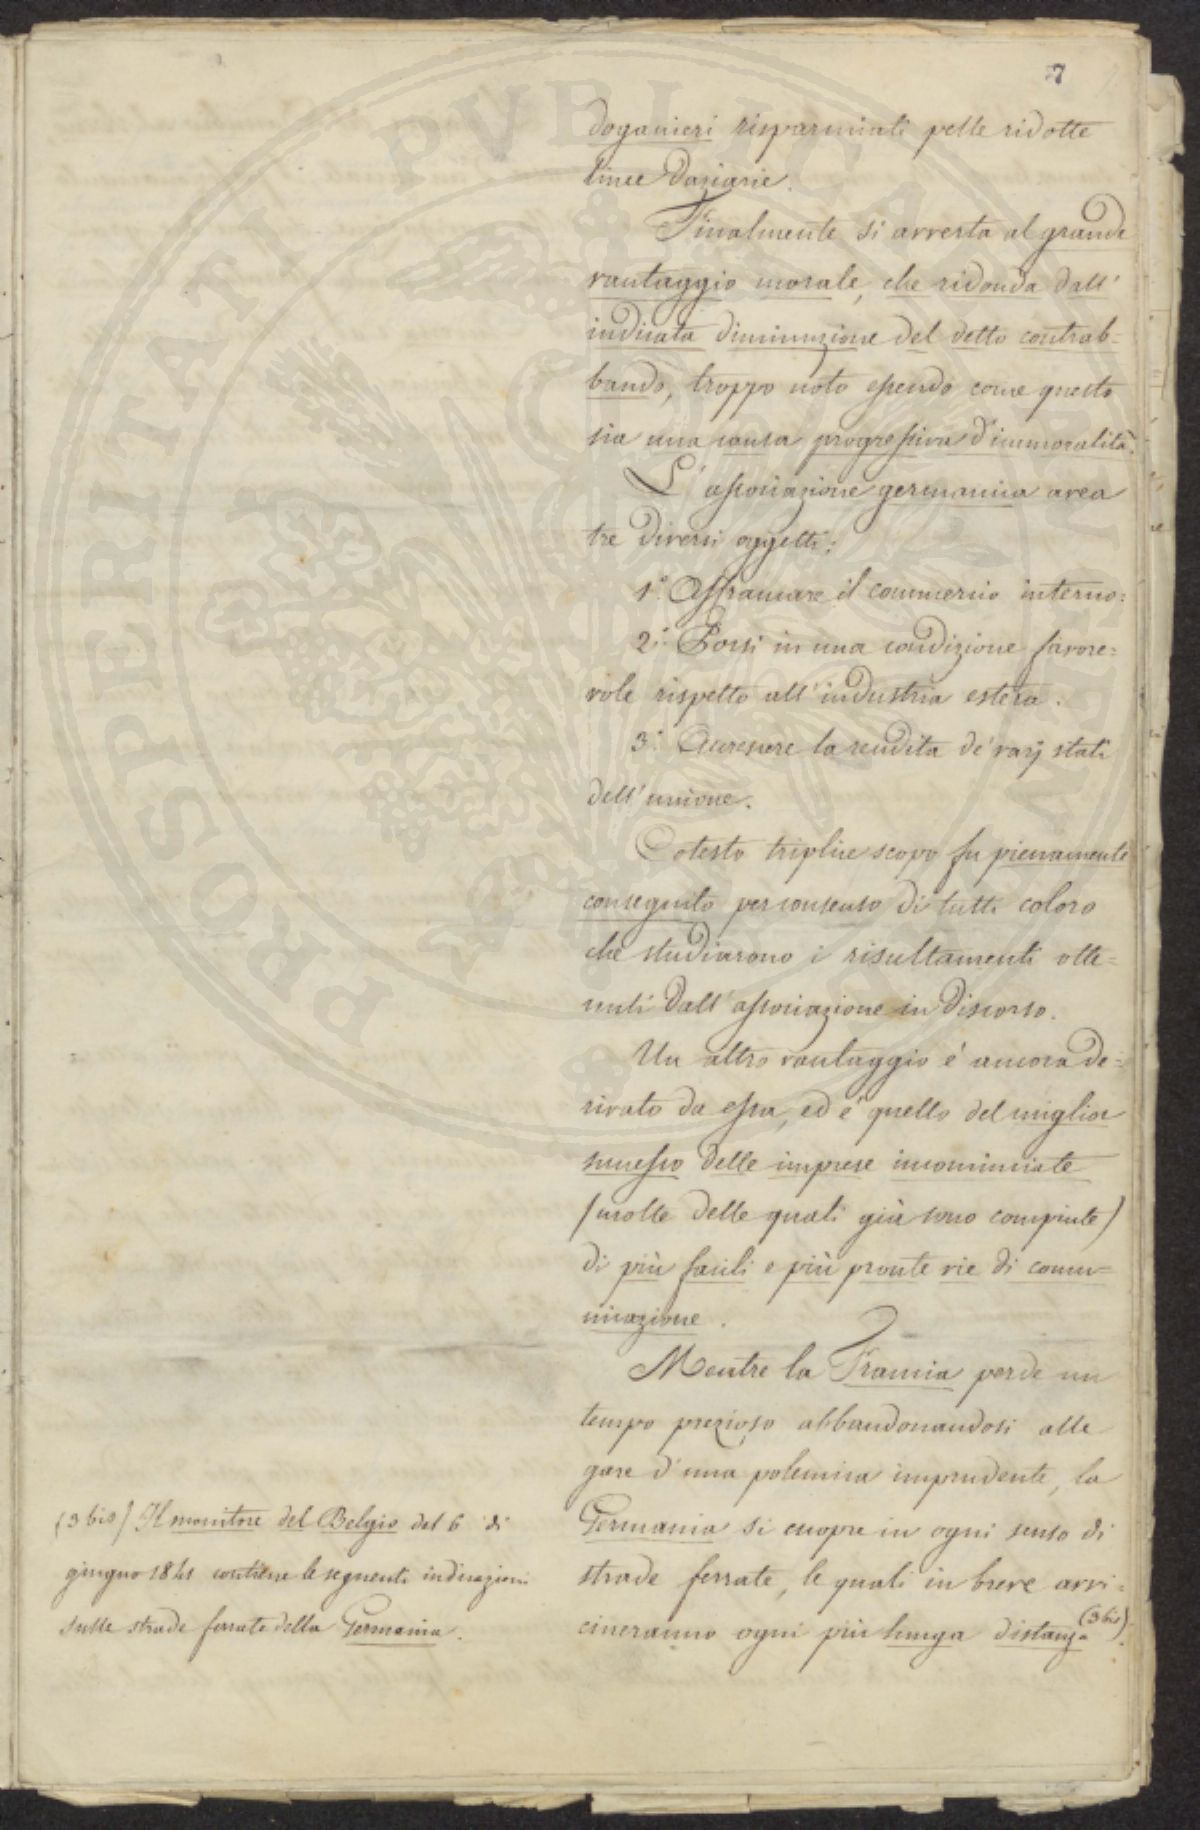 7
doganieri risparmiati pelle ridotte
linee daziarie.
Finalmente si arresta al grande
vantaggio morale, che ridonda dall'
indicata diminuzione del detto contrab-
bando, troppo noto essendo come questo
sia una causa progressiva d'immoralità.
L'associazione germanica avea
tre diversi oggetti:
1°. Affrancare il commercio interno:
2°. Porsi in una condizione favore=
vole rispetto all'industria estera.
3°. Accrescere la rendita de' varj stati
dell'unione.
Cotesto triplice scopo fu pienamente
conseguito per consenso di tutti coloro
che studiarono i risultamenti otte=
nuti dall'associazione in discorso.
Un altro vantaggio è ancora de=
rivato da essa, ed è quello del miglior
successo delle imprese incominciate
(molte delle quali già sono compiute)
di più facili e più pronte vie di comu=
nicazione.
Mentre la Francia perde un
tempo prezioso abbandonandosi alle
gare d'una polemica imprudente, la
Germania si cuopre in ogni senso di
strade ferrate, le quali in breve avvi=
cineranno ogni più lunga distanza (3 bis).
(3 bis) Il monitore del Belgio del 6 di
giugno 1841 contiene le seguenti indicazioni
sulle strade ferrate della Germania.
PROSPERITATI PVBLICAE